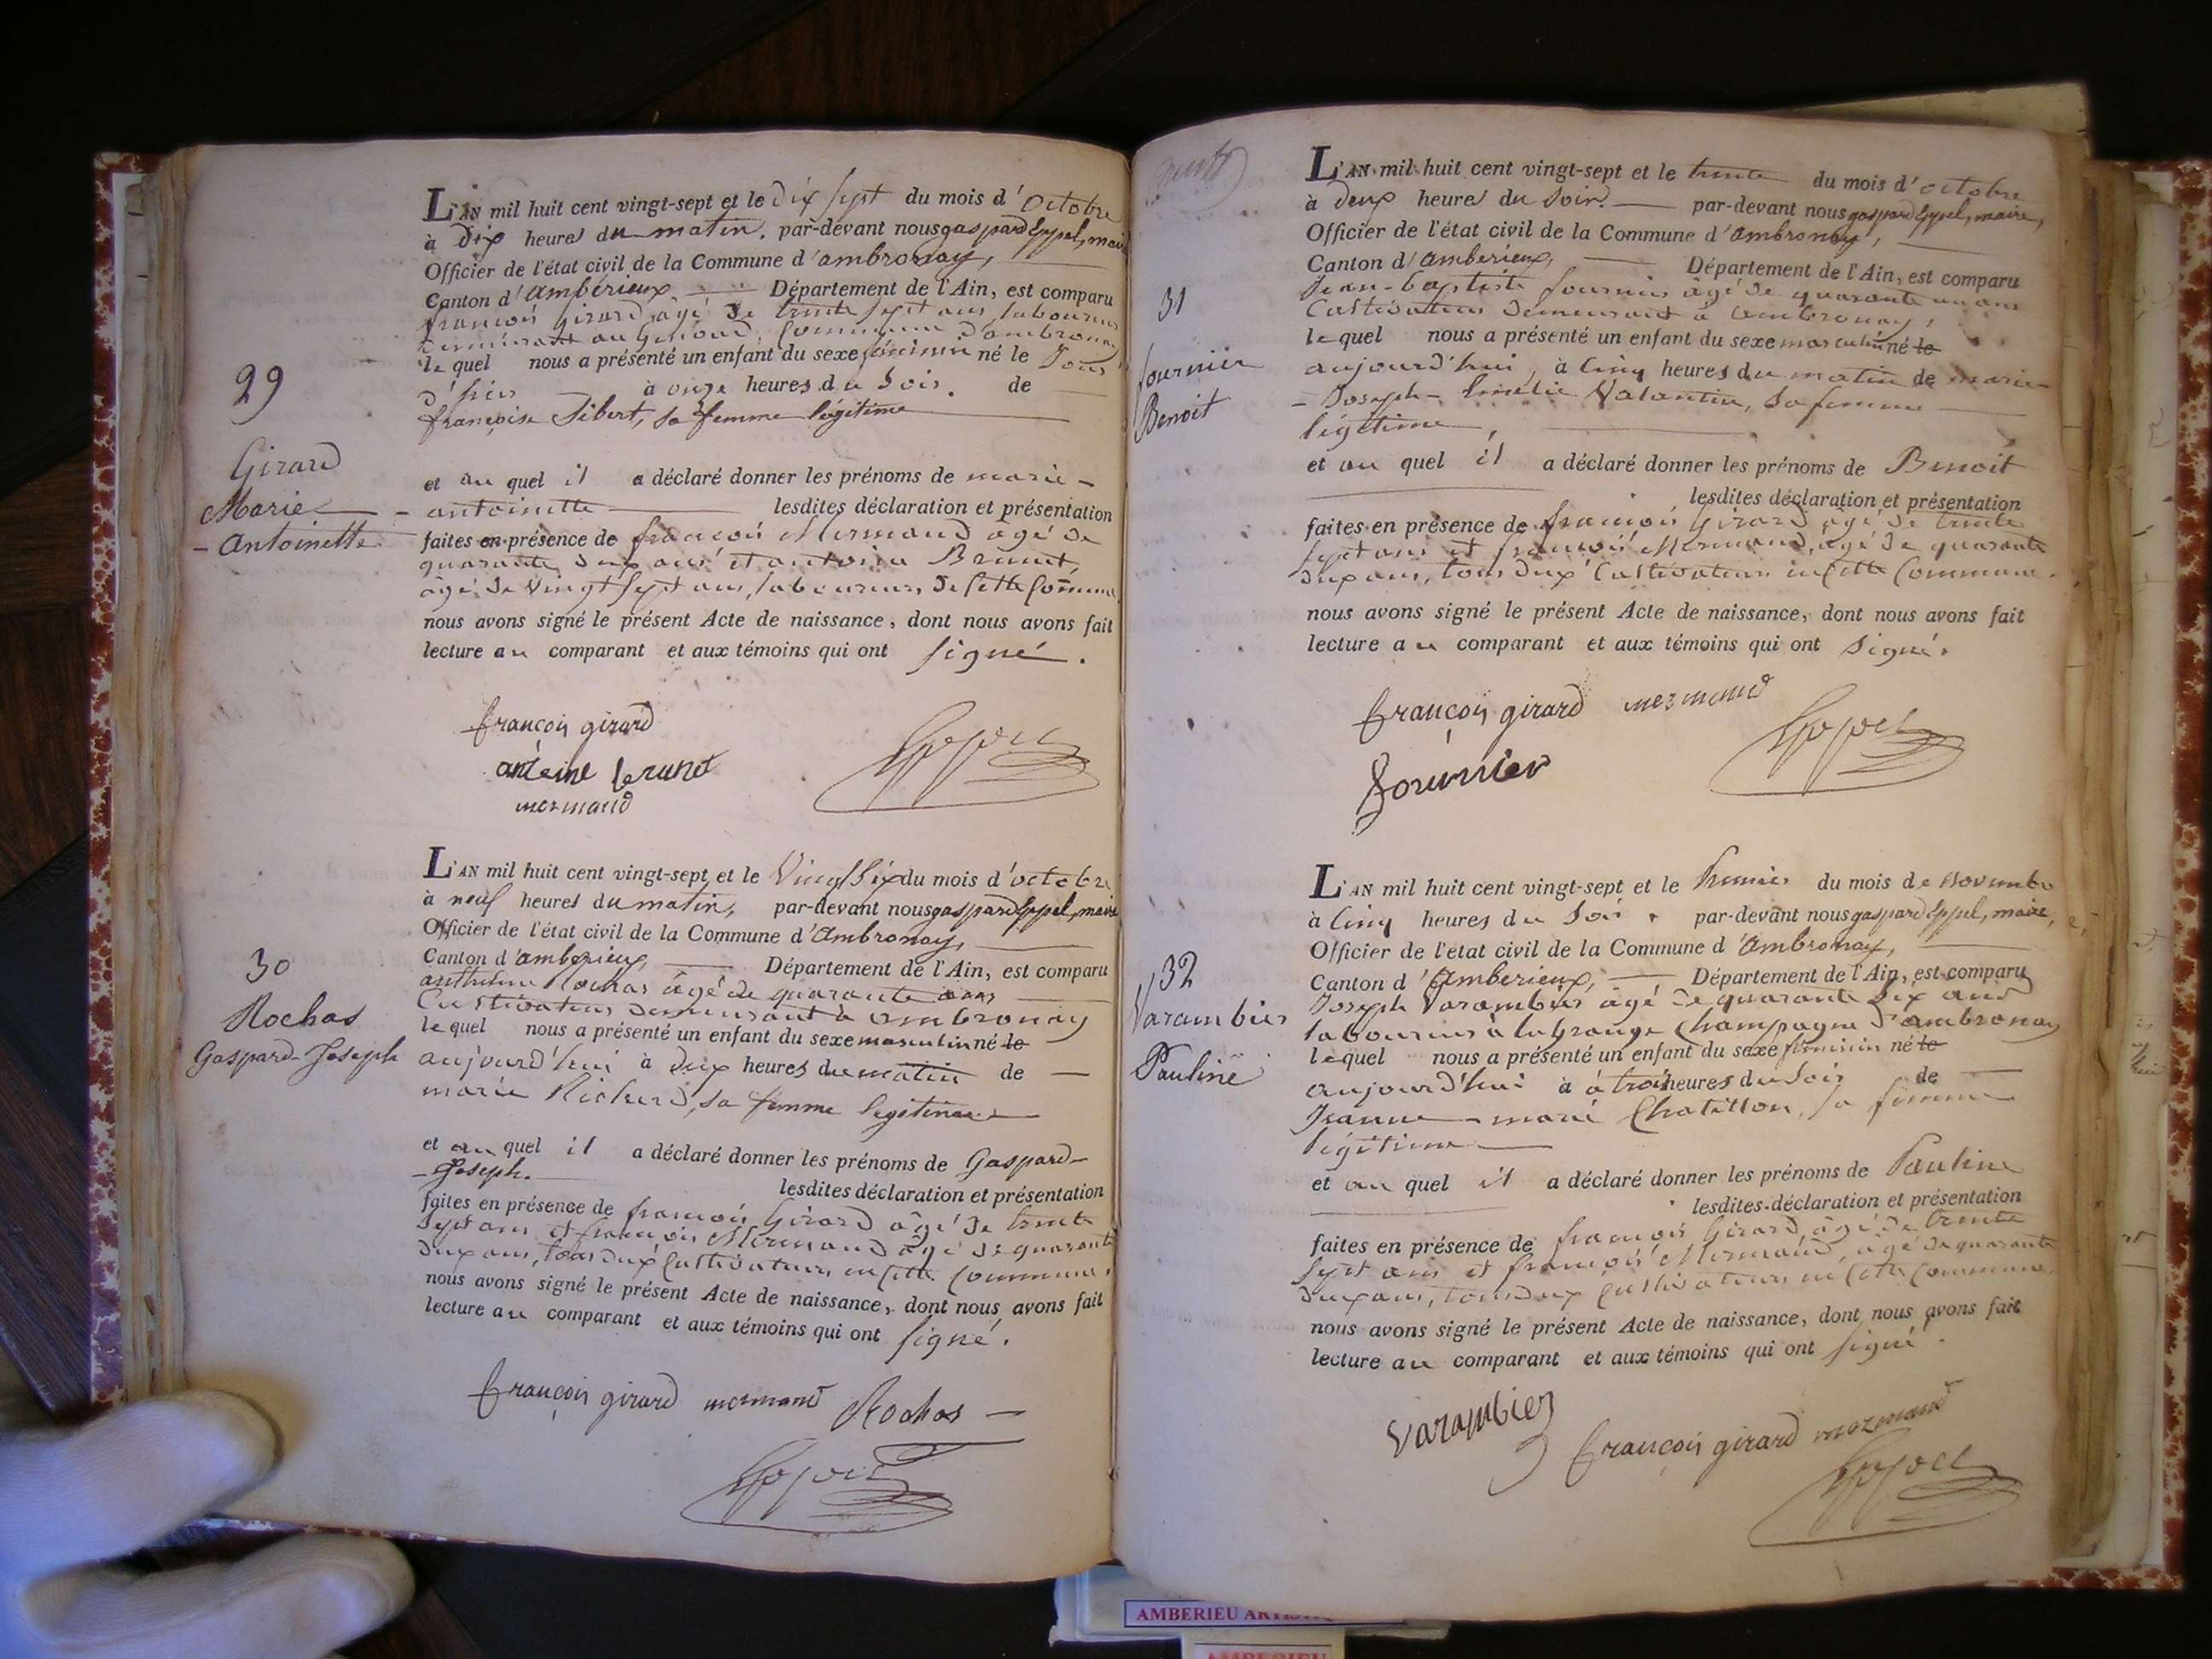 L'AN mil huit cent vingt-sept et le dix sept du mois d'octobre
à dix heures du matin. par-devant nous gaspard Eppel, maire
Officier de l'état civil de la Commune d'ambronay,
Canton d'ambérieux Département de l'Ain, est comparu
françois girard, âgé de trente sept ans, laboureur
demeurant au Commune d'ambronay
lequel nous a présenté un enfant du sexe féminin né le jour
d'hier à onze heures du soir. de
françoise Sibert, sa femme légitime
29
Girard
Marie
- Antoinette
et au quel il a déclaré donner les prénoms de marie-
- antoinette lesdites déclaration et présentation
faites en présence de françois Mermand âgé de
quarante deux ans et antoine Brunet,
âgé de vingt sept ans, laboureurs, de cette commune
nous avons signé le présent Acte de naissance, dont nous avons fait
lecture au comparant et aux témoins qui ont signé.
françois girard
antoine brunet
mermand
L'AN mil huit cent vingt-sept et le vingt six du mois d'octobre
à neuf heures du matin, par-devant nous gaspard Eppel, maire
Officier de l'état civil de la Commune d'Ambronay,
Canton d'amberieux, Département de l'Ain, est comparu
anthelme Rochas âgé de quarante ans
Cultivateur demeurant à ambronay
lequel nous a présenté un enfant du sexe masculin né le
aujourd'hui à deux heures du matin de
marie Richerd, sa femme legitime
30
Rochas
Gaspard-Joseph
et au quel il a déclaré donner les prénoms de Gaspard-
-Joseph. lesdites déclaration et présentation
faites en présence de françois Girard âgé de trente
sept ans et françois Mermand âgé de quarante
deux ans, tous deux Cultivateurs en cette Commune.
nous avons signé le présent Acte de naissance, dont nous avons fait
lecture au comparant et aux témoins qui ont signé.
françois girard mermand Rochas
L'AN mil huit cent vingt-sept et le trente du mois d'octobre
à deux heures du soir. par-devant nous gaspard Eppel, maire,
Officier de l'état civil de la Commune d'ambronay,
Canton d'amberieux, Département de l'Ain, est comparu
Jean-baptiste fournier âgé de quarante un ans
Cultivateur demeurant à ambronay,
lequel nous a présenté un enfant du sexe masculin né le
aujourd'hui, à cinq heures du matin de marie-
- Joseph- Emelie Valantin, sa femme
légitime,
31
fournier
Benoit
et au quel il a déclaré donner les prénoms de Benoit
lesdites déclaration et présentation
faites en présence de françois Girard âgé de trente
sept ans et françois Mermand, âgé de quarante
deux ans, tous deux Cultivateurs en cette Commune.
nous avons signé le présent Acte de naissance, dont nous avons fait
lecture au comparant et aux témoins qui ont signé.
françois girard mermand
fournier
L'AN mil huit cent vingt-sept et le premier du mois de novembre
à cinq heures du soir. par-devant nous gaspard Eppel, maire,
Officier de l'état civil de la Commune d'ambronay,
Canton d'Amberieux, Département de l'Ain, est comparu
Joseph Varambier âgé de quarante six ans
laboureur à la Grange Champagne d'ambronay
lequel nous a présenté un enfant du sexe féminin né le
aujourd'hui à à trois heures du soir de
Jeanne-marie Chatillon, sa femme
légitime
32
Varambier
Pauline
et au quel il a déclaré donner les prénoms de Pauline
lesdites déclaration et présentation
faites en présence de françois Girard, âgé de trente
sept ans et françois Mermand, âgé de quarante
deux ans, tous deux Cultivateurs en cette Commune.
nous avons signé le présent Acte de naissance, dont nous avons fait
lecture au comparant et aux témoins qui ont signé.
Varambier françois girard mermand
AMBERIEU
AMBERIEU